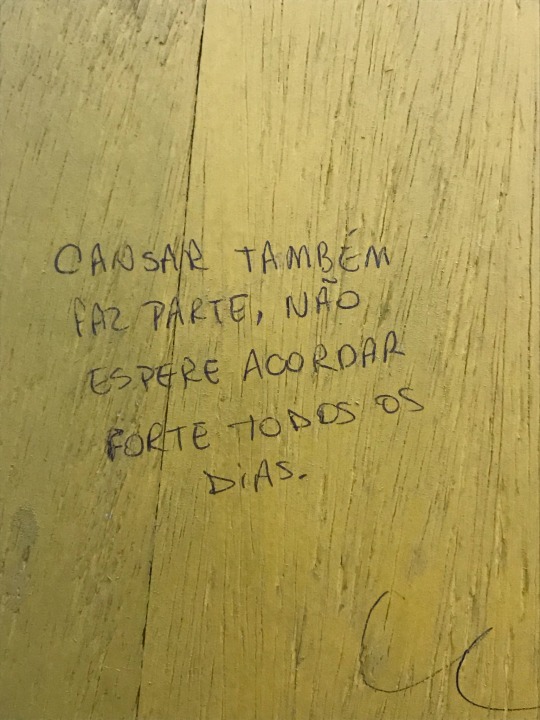 CANSAR TAMBÉM
FAZ PARTE, NÃO
ESPERE ACORDAR
FORTE TODOS OS
DIAS.